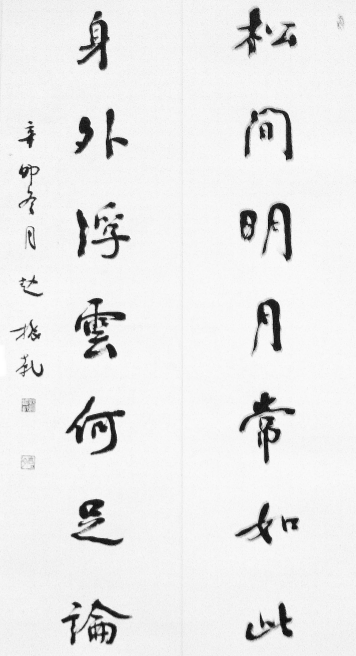 松間明月常如此
身外浮雲何足論
辛卯冬月赵振乾